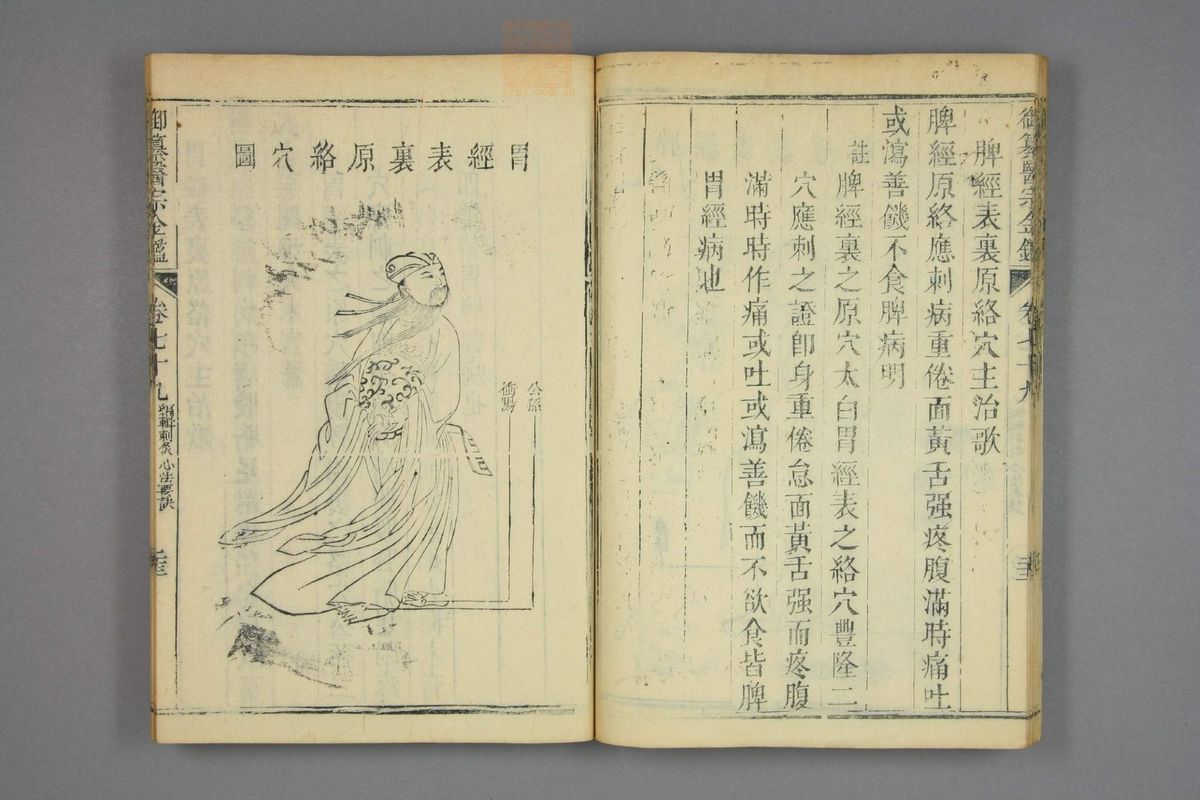 御纂醫宗金鑑 卷七十九
脾經表裏原絡穴主治歌
脾經原絡應刺病重倦面黃舌强疼腹滿時痛吐
或瀉善饑不食脾病明
註
脾經裏之原穴太白胃經表之絡穴豐隆二
穴應刺之證卽身重倦怠面黃舌强而疼腹
滿時時作痛或吐或瀉善饑而不欲食皆脾
胃經病也
胃經表裏原絡穴圖
公孫
衝陽
御纂醫宗金鑑 卷七十九 編輯刺灸心法要訣